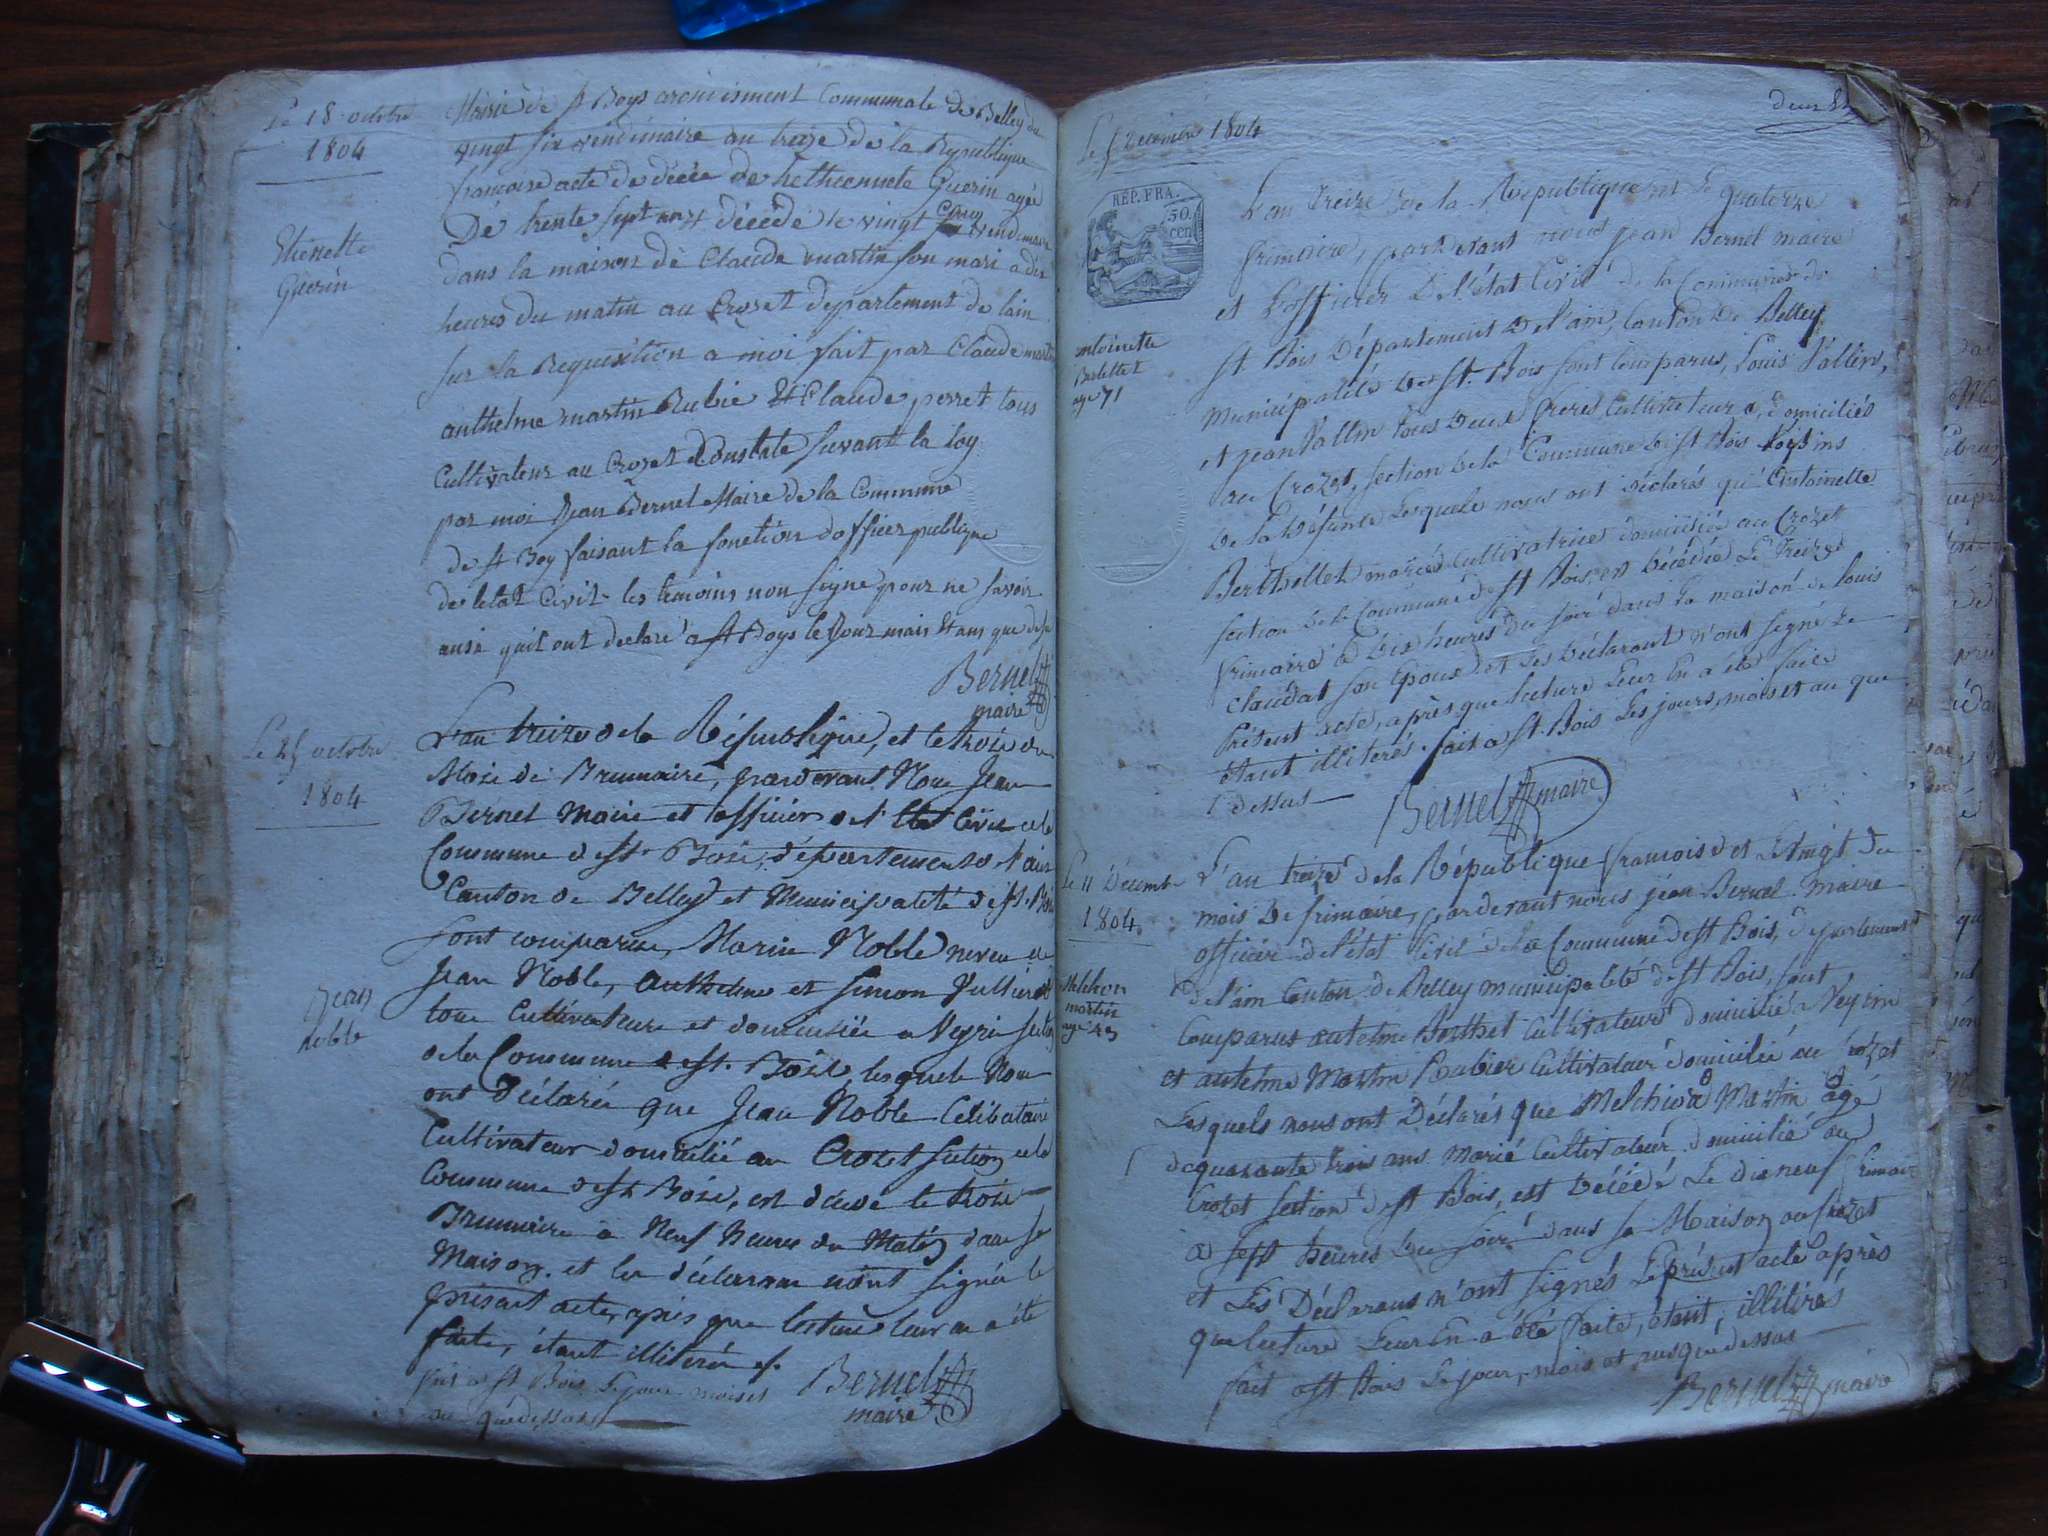 Le 18 octobre
1804
Mairie de St Boys arondisment Communale de Belley du
vingt six vendimaire an treize de la Republique
francoise acte de décée de Guerin agée
De trente sept ans décédé le vingt cinq vendimaire
Etienette
Guerin
dans la maison de Claude martin son mari a dix
heures du matin au Crozet departement de lain
sur la Requisition a moi fait par Claude martin
anthelme martin Rubie Et Claude perret tous
Cultivateur au Crozet Constate suivant la loy
par moi Jean Bernel Maire de la Commune
de St Boy faisant la fonction dofficier publique
de letat Civil les temoins non signe pour ne savoir
ainsi quil ont declaré a St Boys le Jour mois Et ans que dessu
Bernel
maire
Le 25 octobre
1804
L'an treize de la République, et le trois du
Mois de Brumaire, pardevant Nous Jean
Bernel Maire et officier de l'Etat Civil de la
Commune de St. Bois, département de l'ain
Canton de Belley et Municipalité de St. Bois
sont comparus, Marin Noble neveu de
Jean Noble, Anthelme et Simon Vullierod
tous Cultivateurs et domiciliés a Veyrin section
Jean
Noble
de la Commune de St. Bois lesquels Nous
ont Déclarés que Jean Noble Célibataire
Cultivateur domicilié au Crozet section de la
Commune de St Bois, est décédé le trois
Brumaire à Neuf heures du Matin dans sa
Maison. et les déclarans n'ont signés le
présent acte, après que lecture leur en a été
faite, étant illiterés
fait a St Bois Le jour mois et
an que dessus
Bernel
maire
deux
Le 5 Decembre 1804
REP. FRA.
50.
cen
L'an Treize de la République et Le quatorze
frimaire, pardevant nous jean Bernel maire
et L'officier De l'état Civil de la Commune de
St Bois Département De l'ain, Canton De Belley
antoinette
Bertellet
age 71
Municipalité De St. Bois sont Comparus, Louis Vallin,
et jean Vallin tous Deux freres Cultivateurs, domiciliés
au Crozet, section De la Commune De St Bois voisins
De la Défunte Lesquels nous ont Déclarés qu'Antoinette
Berthellet mariée Cultivatrice domiciliée au Crozet
section De la Commune de St Bois, est Décédée Le Treize
frimaire a Dix heures du soir dans la maison de louis
Claudat son Epoux et Les Déclarant n'ont signé Le
Présent acte, après que lecture Leur En a été faite
étant illiterés. fait a St. Bois Les jours, mois et an que
dessus
Bernel maire
Le 11 Decembre
1804.
L'an treize de la République françoise et Le Vingt du
mois De frimaire, pardevant nous jean Bernel maire
officier de l'état Civil de la Commune de St Bois, département
de l'ain Canton de Belley municipalité de St Bois, sont
Melchior
martin
age 43
Comparus antelme Berthet Cultivateur domicilié a Veyrin
et antelme Martin Rubier Cultivateur domicilié au Crozet
Lesquels nous ont Déclarés que Melchior Martin âgé
de quarante trois ans Marié Cultivateur domicilié au
Crozet section de St Bois, est Décédé Le dix neuf frimaire
a sept heures Du soir dans sa Maison au Crozet
et Les Déclarans n'ont signés Le présent acte après
que lecture Leur En a été faite, étant illitirés
fait a St Bois Le jour, mois et an que dessus
Bernel maire